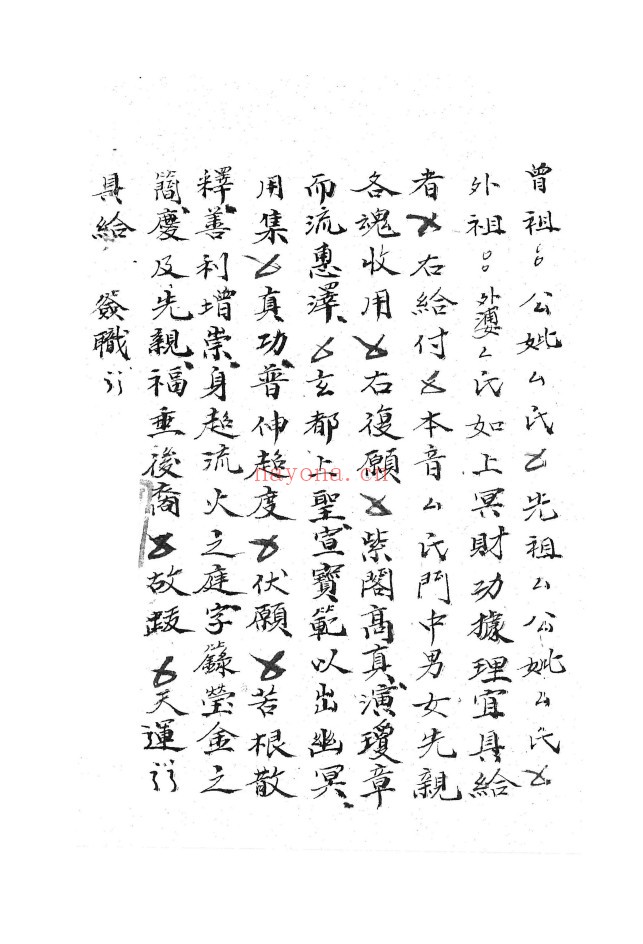 曾祖公妣厶氏 先祖厶公妣厶氏
外祖 外婆厶氏如上冥財功據理宜具給
者 右給付 本音厶氏門中男女先親
各魂收用 右復願 紫閣高真演瓊章
而流惠澤 玄都上聖宣寶範以出幽冥
用集 真功普伸超度 伏願 苦根散
釋善利增崇身超流火之庭字籙瑩金之
簡慶及先親福垂後裔 故 天運
具給 簽職
nayona.cn